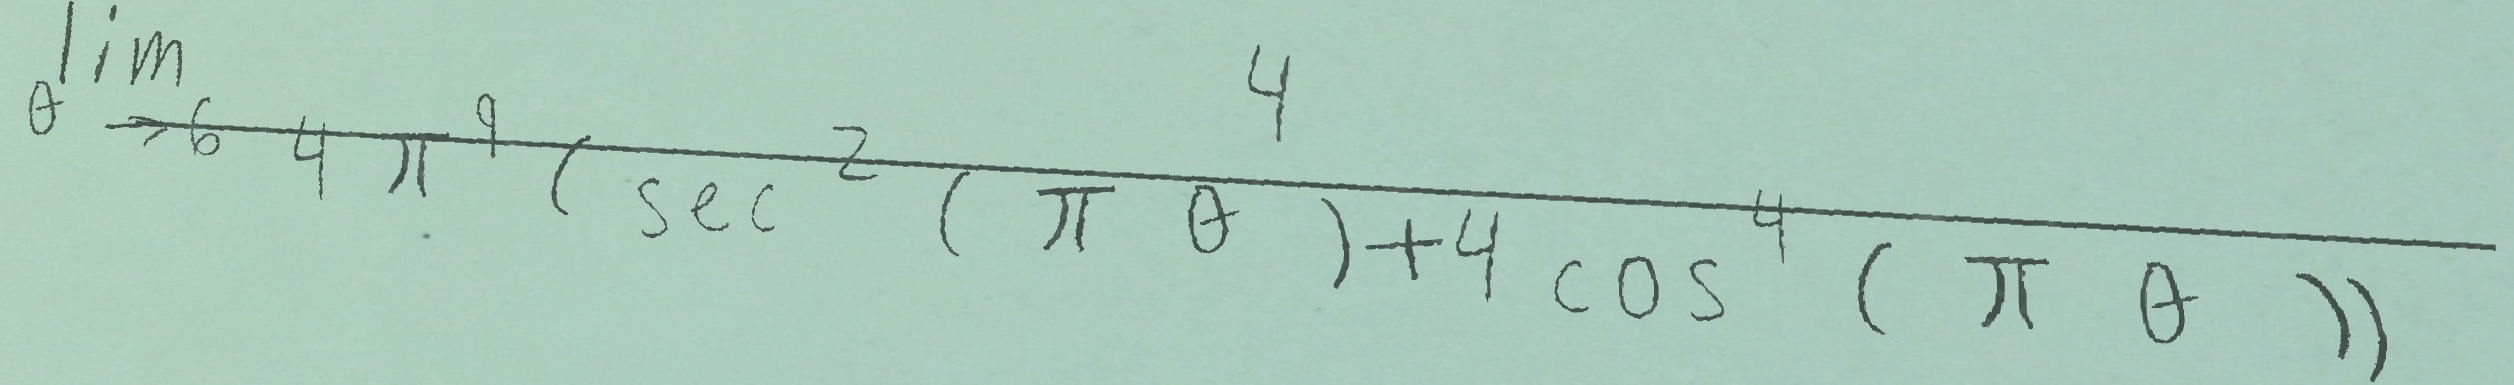 \lim_{\theta \to 6} \frac{4}{4\pi^{9}(\sec^{2}(\pi\theta)+4\cos^{4}(\pi\theta))}